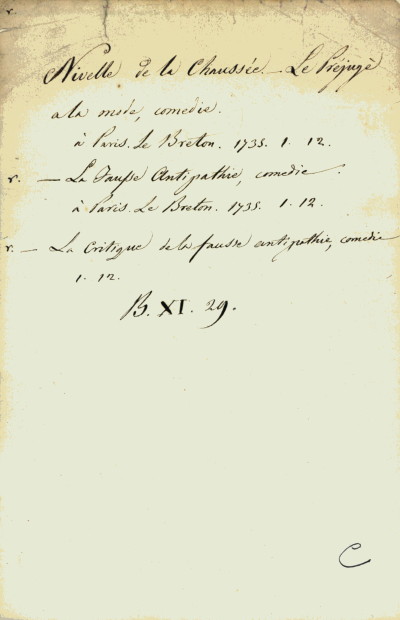 r.
Nivelle de la Chaussée. — Le Préjugé
a la mode, comedie.
à Paris. Le Breton. 1735. 1. 12.
r. — La Fausse Antipathie, comedie.
à Paris. Le Breton. 1735. 1. 12.
r. — La Critique de la fausse antipathie, comedie
1. 12.
B. XI. 29.
C